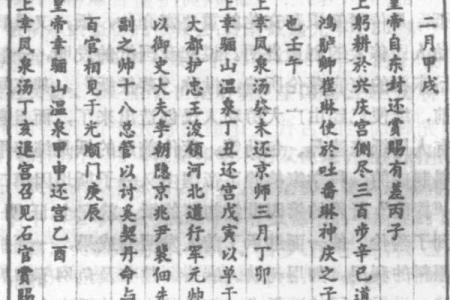 二月甲戌
皇帝自东封还賞賜有差丙子
上躬耕於兴庆宫侧尽三百步辛已道
鸿胪卿崔琳使於吐番琳神庆之子
也壬午
上幸凤泉汤癸未还京师三月丁卯
上幸骊山温泉丁丑还宫戊寅以单于
大都护忠王浚領河北道行军元帅
以御史大夫李朝隐京兆尹裴伷先
副之帅十八总管以讨奚契丹命与
百官相见于光顺门庚辰
皇帝幸骊山温泉甲申还宫乙酉
上幸凤泉汤丁亥還宫召见石官賞賜